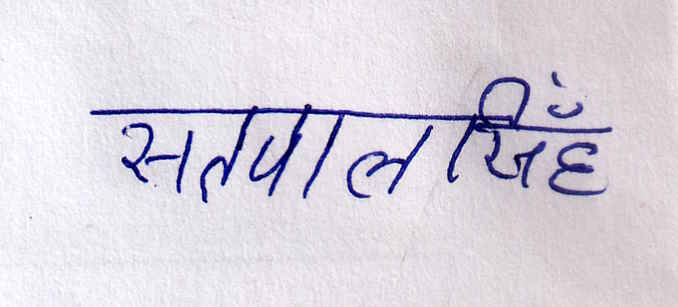 सतपाल सिँह